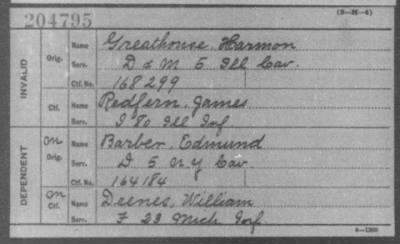 204795
(3-M-4)
INVALID
Orig.
Name Greathouse, Harmon
Serv. D & M 5 Ill Cav.
Ctf. No. 168299
Ctf.
Name Redfern, James
Serv. I 80 Ill Inf
DEPENDENT
on
Orig.
Name Barber, Edmund
Serv. D 5 N.Y Cav
Ctf. No. 164184
on
Ctf.
Name Deenes, William
Serv. F 23 Mich Inf.